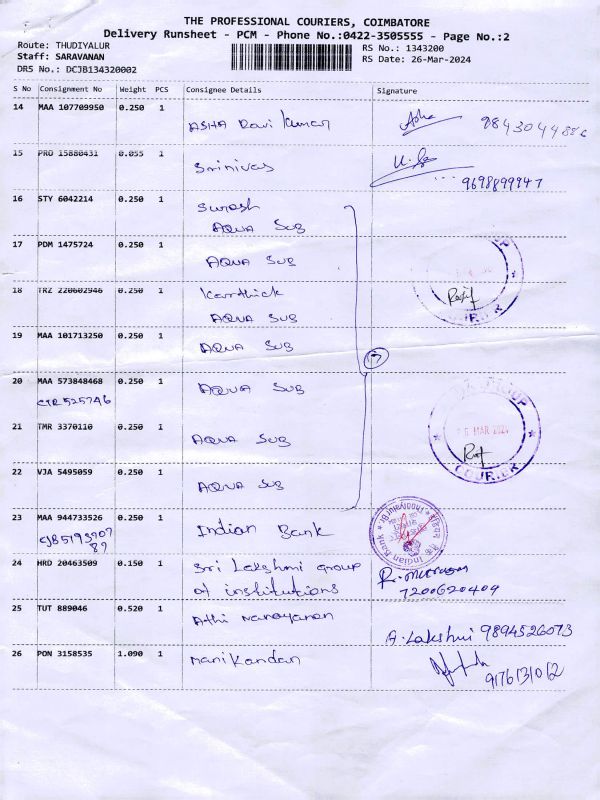 THE PROFESSIONAL COURIERS, COIMBATORE
Delivery Runsheet - PCM - Phone No.:0422-3505555 - Page No.:2
Route: THUDIYALUR
Staff: SARAVANAN
DRS No.: DCJB134320002
RS No.: 1343200
RS Date: 26-Mar-2024
S No Consignment No Weight PCS Consignee Details Signature
14 MAA 107709950 0.250 1
ASHA Ravi Kumar Asha
15 PRO 15880431 0.055 1
Srinivas
9698899947
16 STY 6042214 0.250 1 Suresh
AQUA SUB
17 PDM 1475724 0.250 1
AQUA SUB
18 TRZ 220602946 0.250 1 Karthick
AQUA SUB
COURIER
19 MAA 101713250 0.250 1
AQUA SUB
7
20 MAA 573848468 0.250 1 AQUA SUB
CTR 525746
21 TMR 3370110 0.250 1
AQUA SUB
MAR 2024
COURIER
22 VJA 5495059 0.250 1
AQUA SUB
23 MAA 944733526 0.250 1 Indian Bank
CJB5193907
87
Indian Bank
24 HRD 20463509 0.150 1 Sri Lakshmi group
of institutions
7200620409
25 TUT 889046 0.520 1 Athi Narayanan
A. Lakshmi 9894526073
26 PON 3158535 1.090 1 Manikandan
9176131062